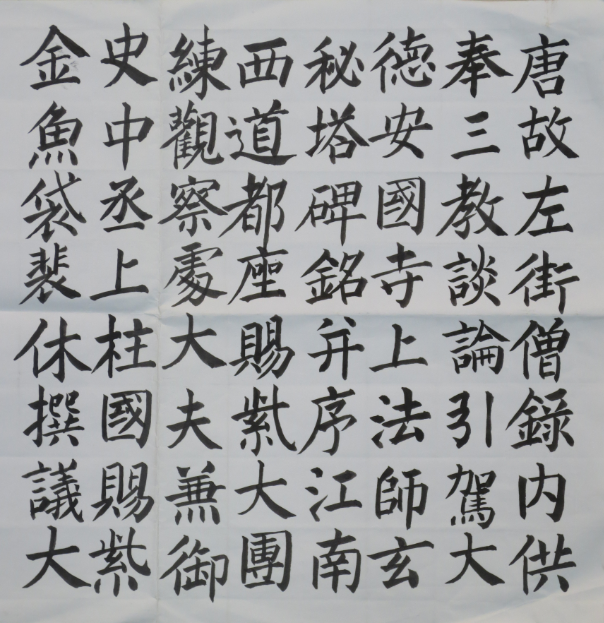 唐故左街僧錄内供
奉三教談論引駕大
德安國寺上法師玄
秘塔碑銘并序江南
西道都座賜紫大團
練觀察處大夫兼御
史中丞上柱國賜紫
金魚袋裴休撰議大